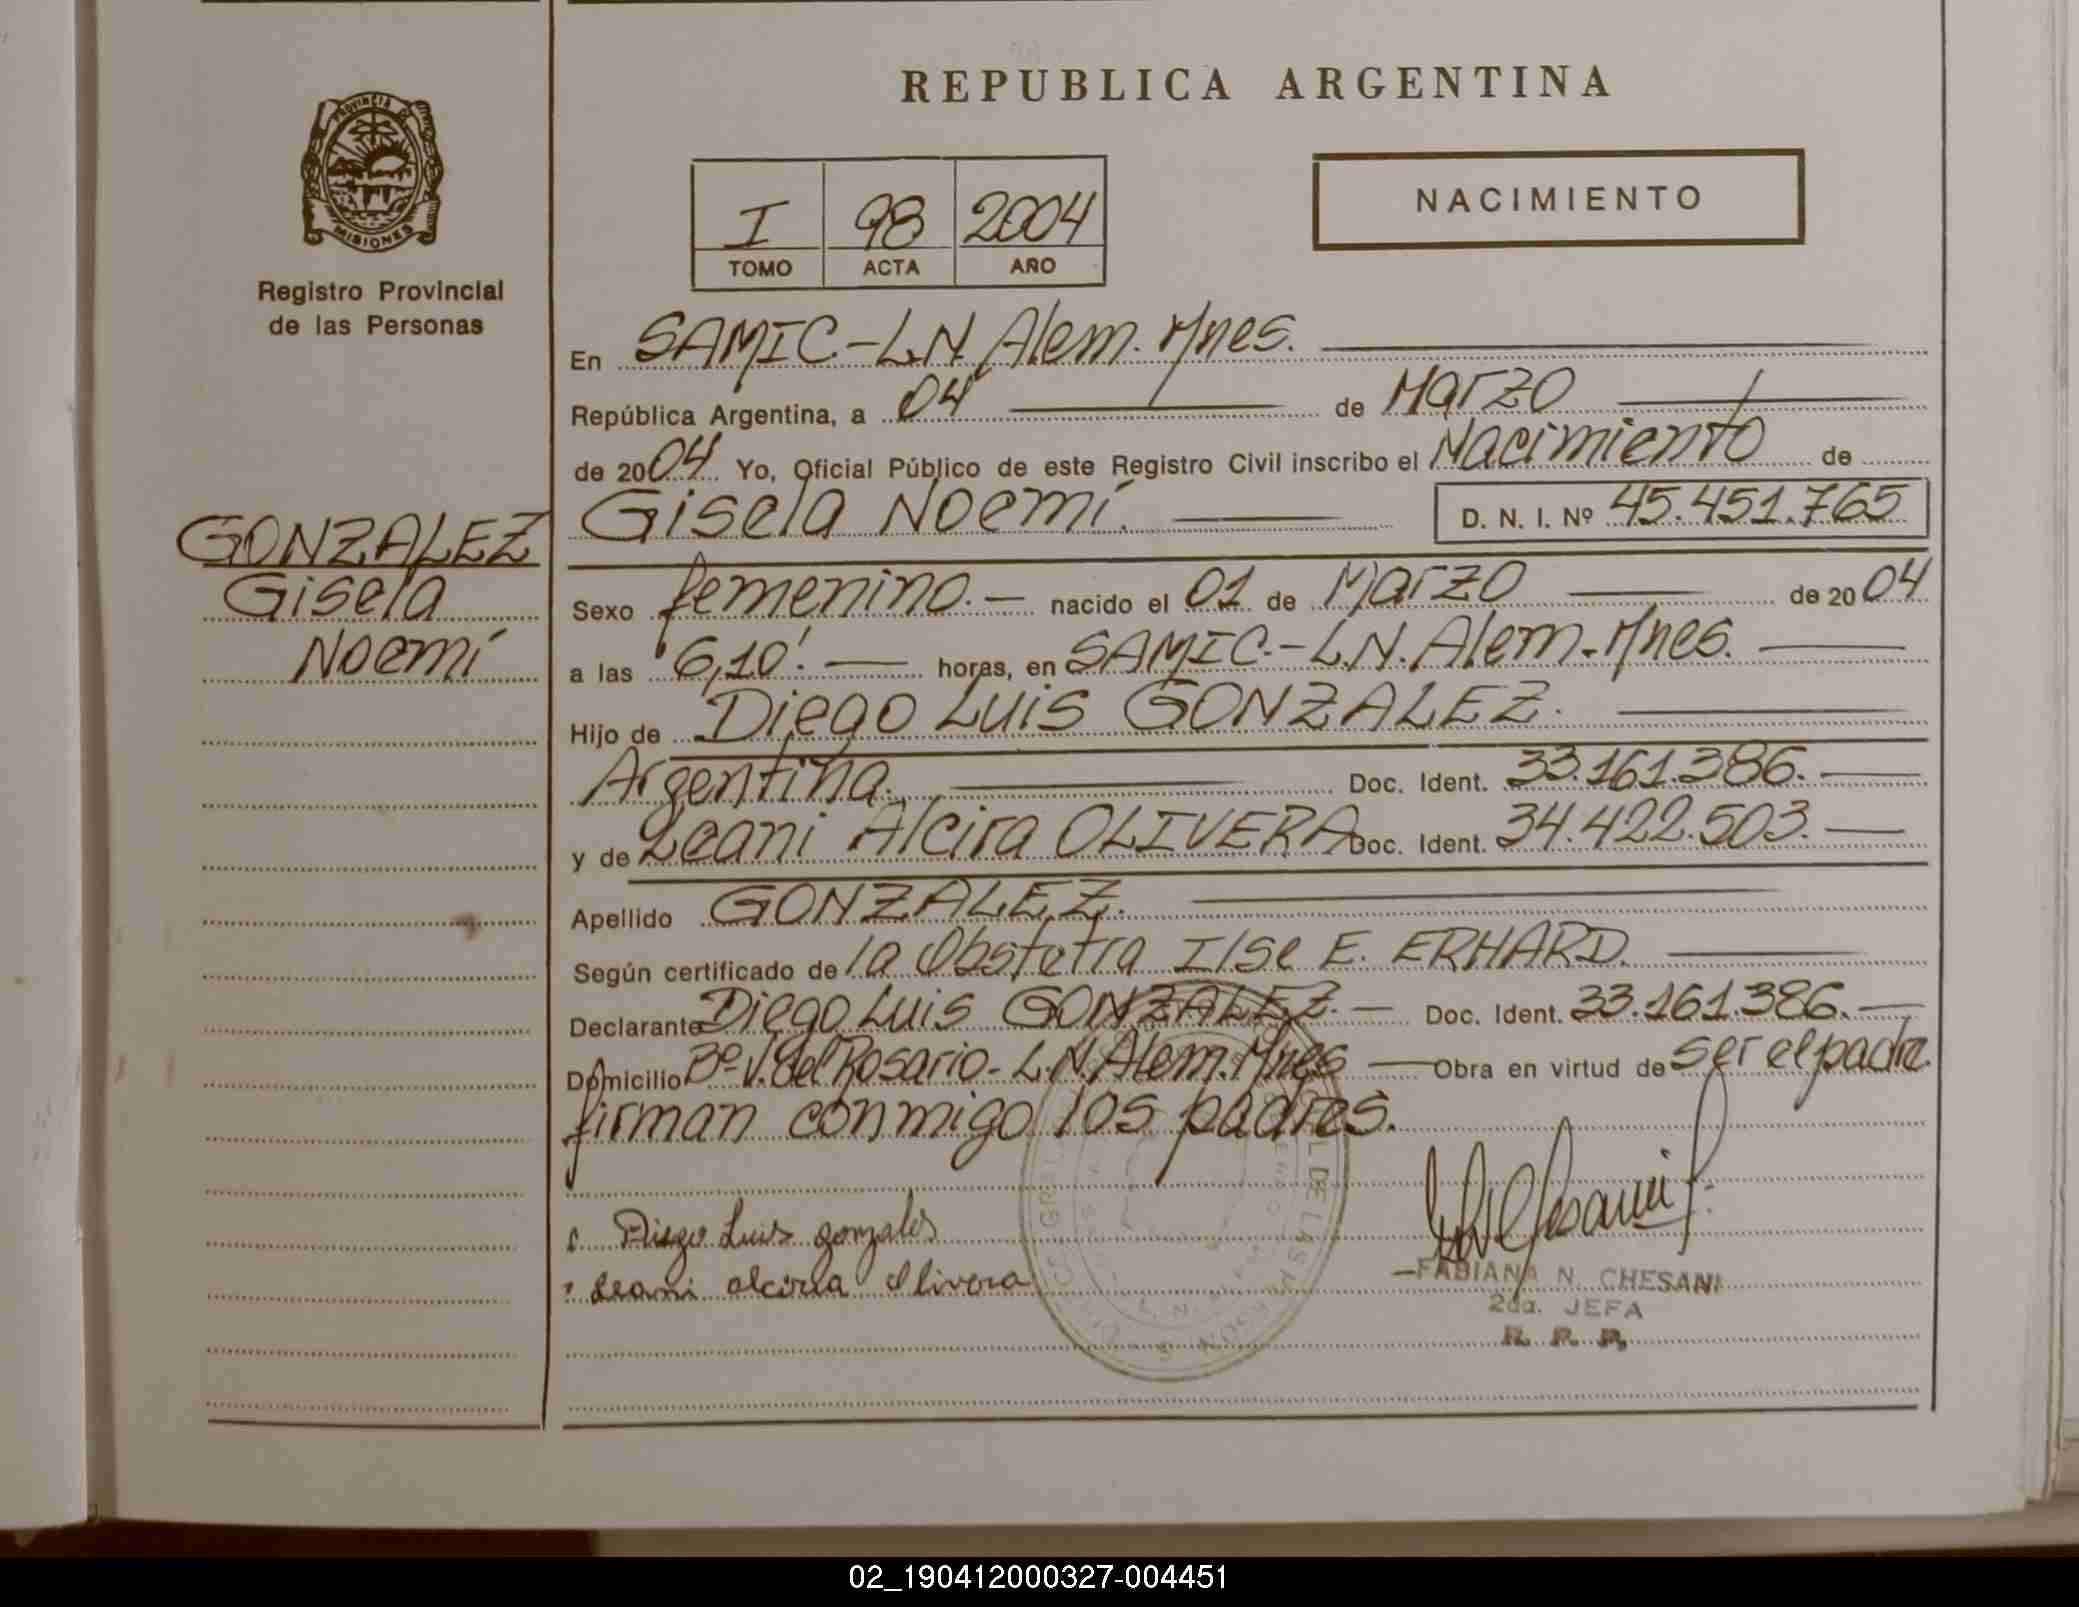 REPUBLICA ARGENTINA
PROVINCIA DE
MISIONES
Registro Provincial
de las Personas
I 98 2004
TOMO ACTA AÑO
NACIMIENTO
En SAMIC.-L.N. Alem. Mnes.
República Argentina, a 04 de Marzo
de 2004 Yo, Oficial Público de este Registro Civil inscribo el Nacimiento de
Gisela Noemí. D. N. I. Nº 45.451.765
GONZALEZ
Gisela
Noemí
Sexo femenino.- nacido el 01 de Marzo de 2004
a las 6,10'. horas, en SAMIC.-L.N. Alem.-Mnes.
Hijo de Diego Luis GONZALEZ.
Argentina. Doc. Ident. 33.161.386.
y de Leani Alcira OLIVERA Doc. Ident. 34.422.503.
Apellido GONZALEZ.
Según certificado de la Obstetra Ilse E. ERHARD.
Declarante Diego Luis GONZALEZ.- Doc. Ident. 33.161.386.
Domicilio Bº V. del Rosario- L.N. Alem. Mnes Obra en virtud de ser el padre.
firman conmigo los padres.
Diego Luis gonzales
Leani alcira olivera
FABIANA N. CHESANI
2da. JEFA
R. P. P.
02_190412000327-004451